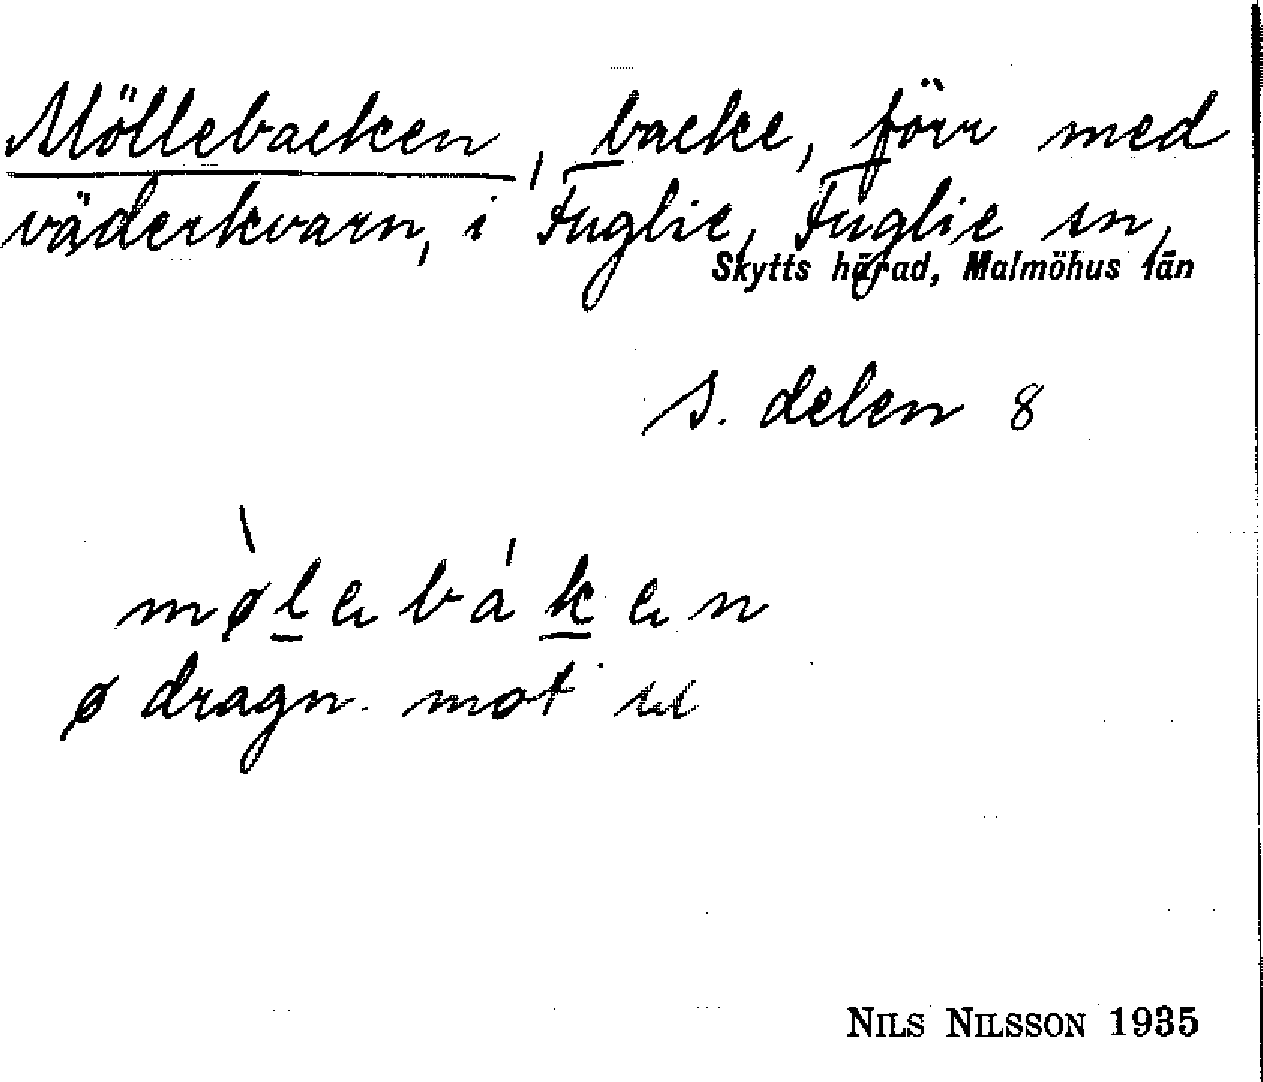 Möllebacken, backe, förr med
väderkvarn, i Fuglie, Fuglie sn,
Skytts härad, Malmöhus län
S. delen 8
mølebáken
ø dragn. mot
NILS NILSSON 1935